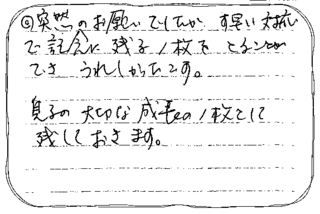 ◎突然のお願いでしたが、す早い対応
で記念に残る1枚を とることが
でき うれしかったです。
息子の大切な成長の1枚として
残しておきます。